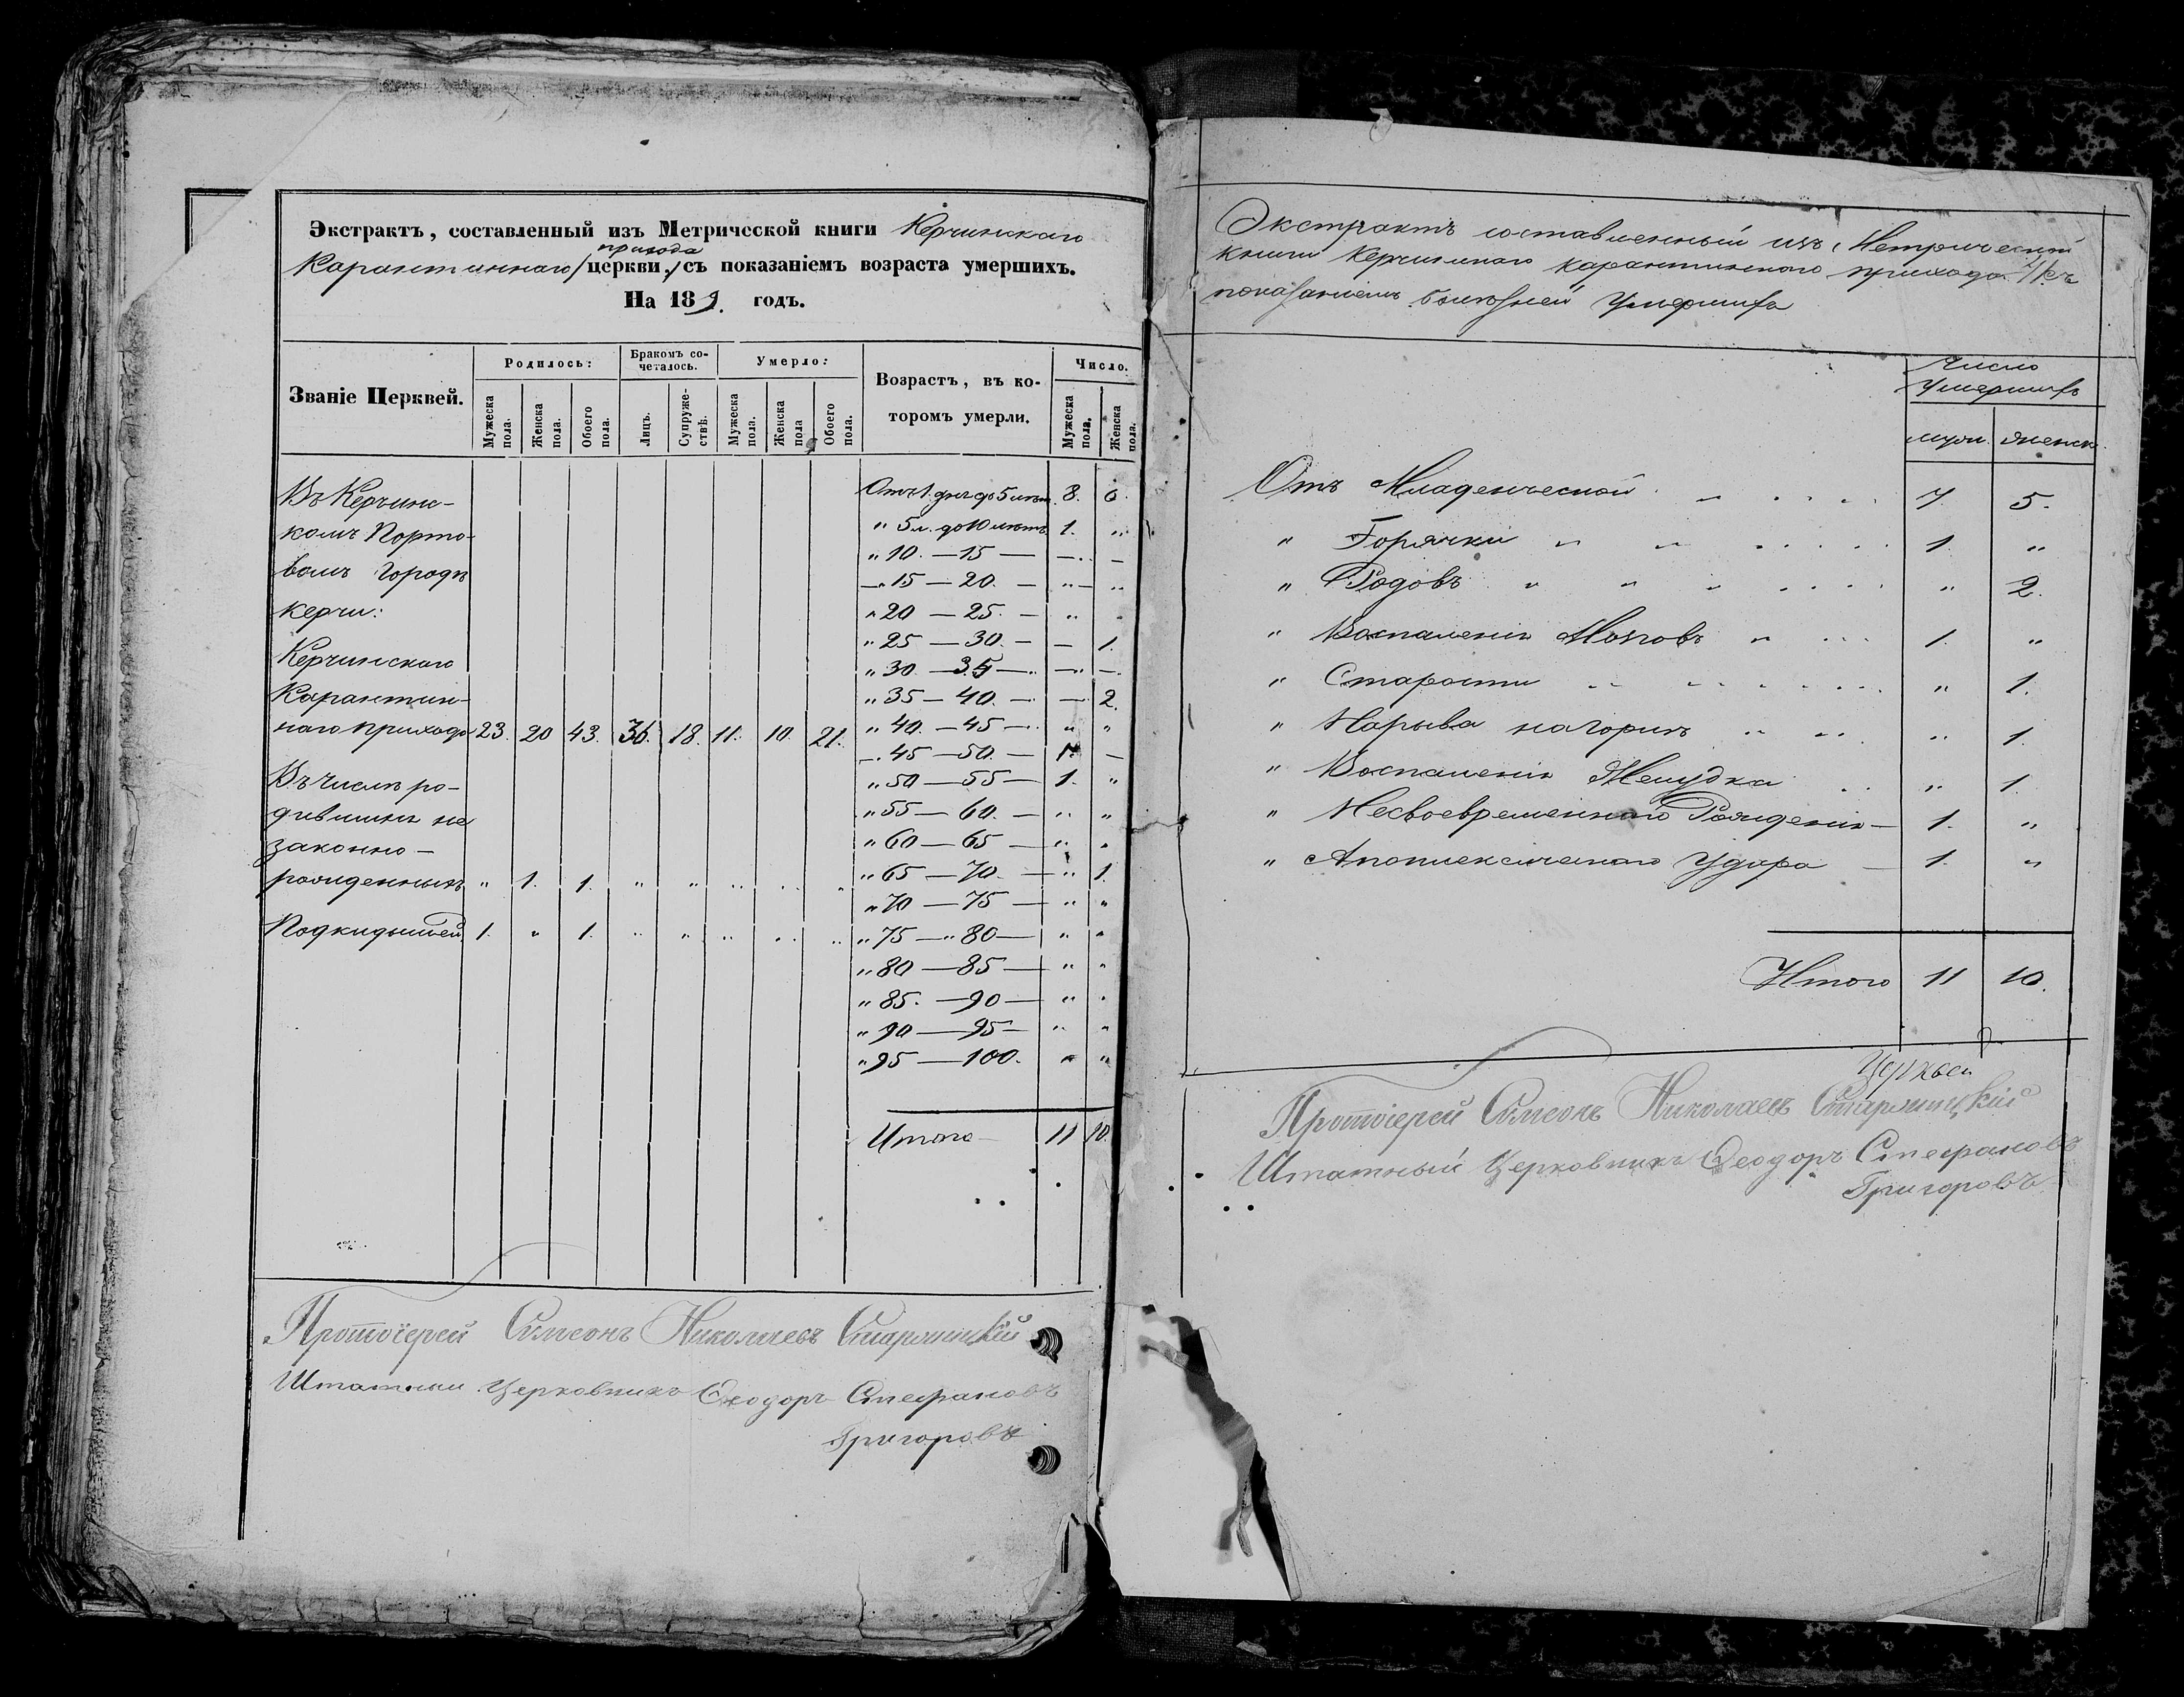 Экстрактъ, составленный изъ Метрической книги Керчинскаго
прихода
Карантиннаго /церкви./ съ показаніемъ возраста умершихъ.
На 18 9. годъ.
Званіе Церквей.
Родилось:
Бракомъ со-
четалось.
Умерло:
Возрастъ, въ ко-
торомъ умерли.
Число.
Мужеска пола.
Женска пола.
Обоего пола.
Лицъ.
Супруже-
ствъ.
Мужеска пола.
Женска пола
Обоего пола.
Мужеска пола.
Женска пола.
Въ Керчинс-
комъ Порто-
вомъ Городѣ
Керчи:
Керчинскаго
Карантин-
наго прихода 23. 20 43. 36. 18. 11. 10. 21.
Въ числѣ ро-
дившихъ не
законно-
рожденныхъ „ 1. 1. „ „ „ „ „
Подкидышей 1. „ 1. „ „ „ „ „
Отъ 1. дня до 5 лѣтъ 8. 6.
„ 5 л. до 10 лѣтъ 1. „
„ 10. — 15 — — —
„ 15 — 20. — „ „
„ 20 — 25. — „ „
„ 25 — 30. — — 1.
„ 30 — 35 — „ —
„ 35 — 40. — — 2.
„ 40. — 45 — „ „
„ 45 — 50. — 1. —
„ 50 — 55 — 1. „
„ 55 — 60. — „ „
„ 60 — 65 — „ „
„ 65 — 70. — „ 1.
„ 70 — 75 — „ „
„ 75 — „ 80 — „ „
„ 80 — 85 — „ „
„ 85. — 90 — „ „
„ 90 — 95 — „ „
„ 95 — 100. „ „
Итого — 11 10.
Протоіерей Симеонъ Николаевъ Старницкій
Штатный Церковникъ Ѳеодоръ Стефановъ
Григоровъ
Экстрактъ составленный изъ Метрической
книги Керчинскаго карантиннаго прихода съ
показаніемъ болѣзней Умершихъ
Число
Умершихъ
муж. женск.
Отъ Младенческой 7. 5.
„ Горячки „ „ 1. „
„ Родовъ „ „ „ „ 2.
„ Воспаленія Мозговъ „ 1. „
„ Старости „ „ „ 1.
„ Нарыва на горлѣ „ „ „ 1.
„ Воспаленія Желудка „ 1.
„ Несвоевременнаго Рожденія — 1. „
„ Апоплексическаго Удара — 1. „
Итого 11 10.
Церквей
Протоіерей Симеонъ Николаевъ Старницкій
Штатный Церковникъ Ѳеодоръ Стефановъ
Григоровъ